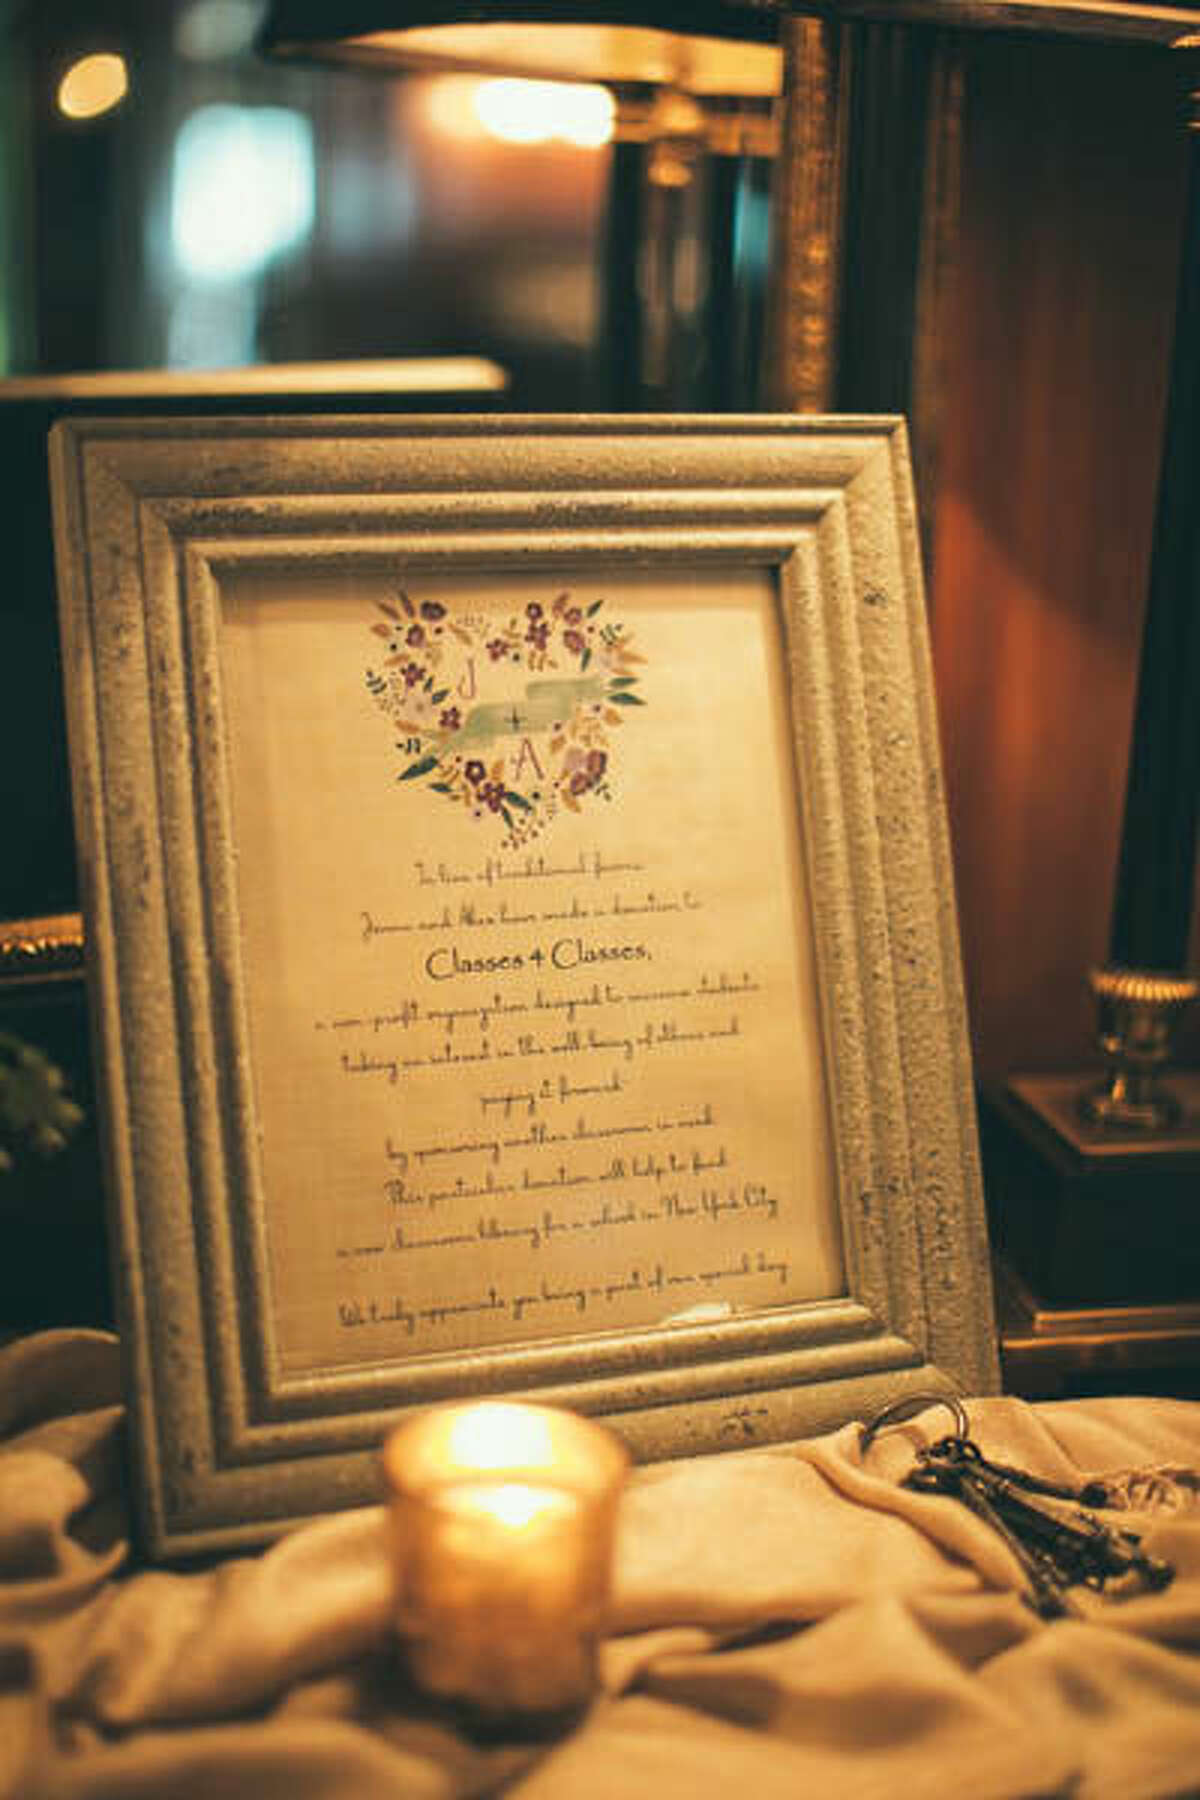 J
+
A
In lieu of traditional favors
Jenna and Alex have made a donation to
Classes 4 Classes,
a non-profit organization designed to increase students
taking an interest in the well-being of others and
paying it forward
by sponsoring another classroom in need.
This particular donation will help to fund
a new classroom library for a school in New York City
We truly appreciate you being a part of our special day